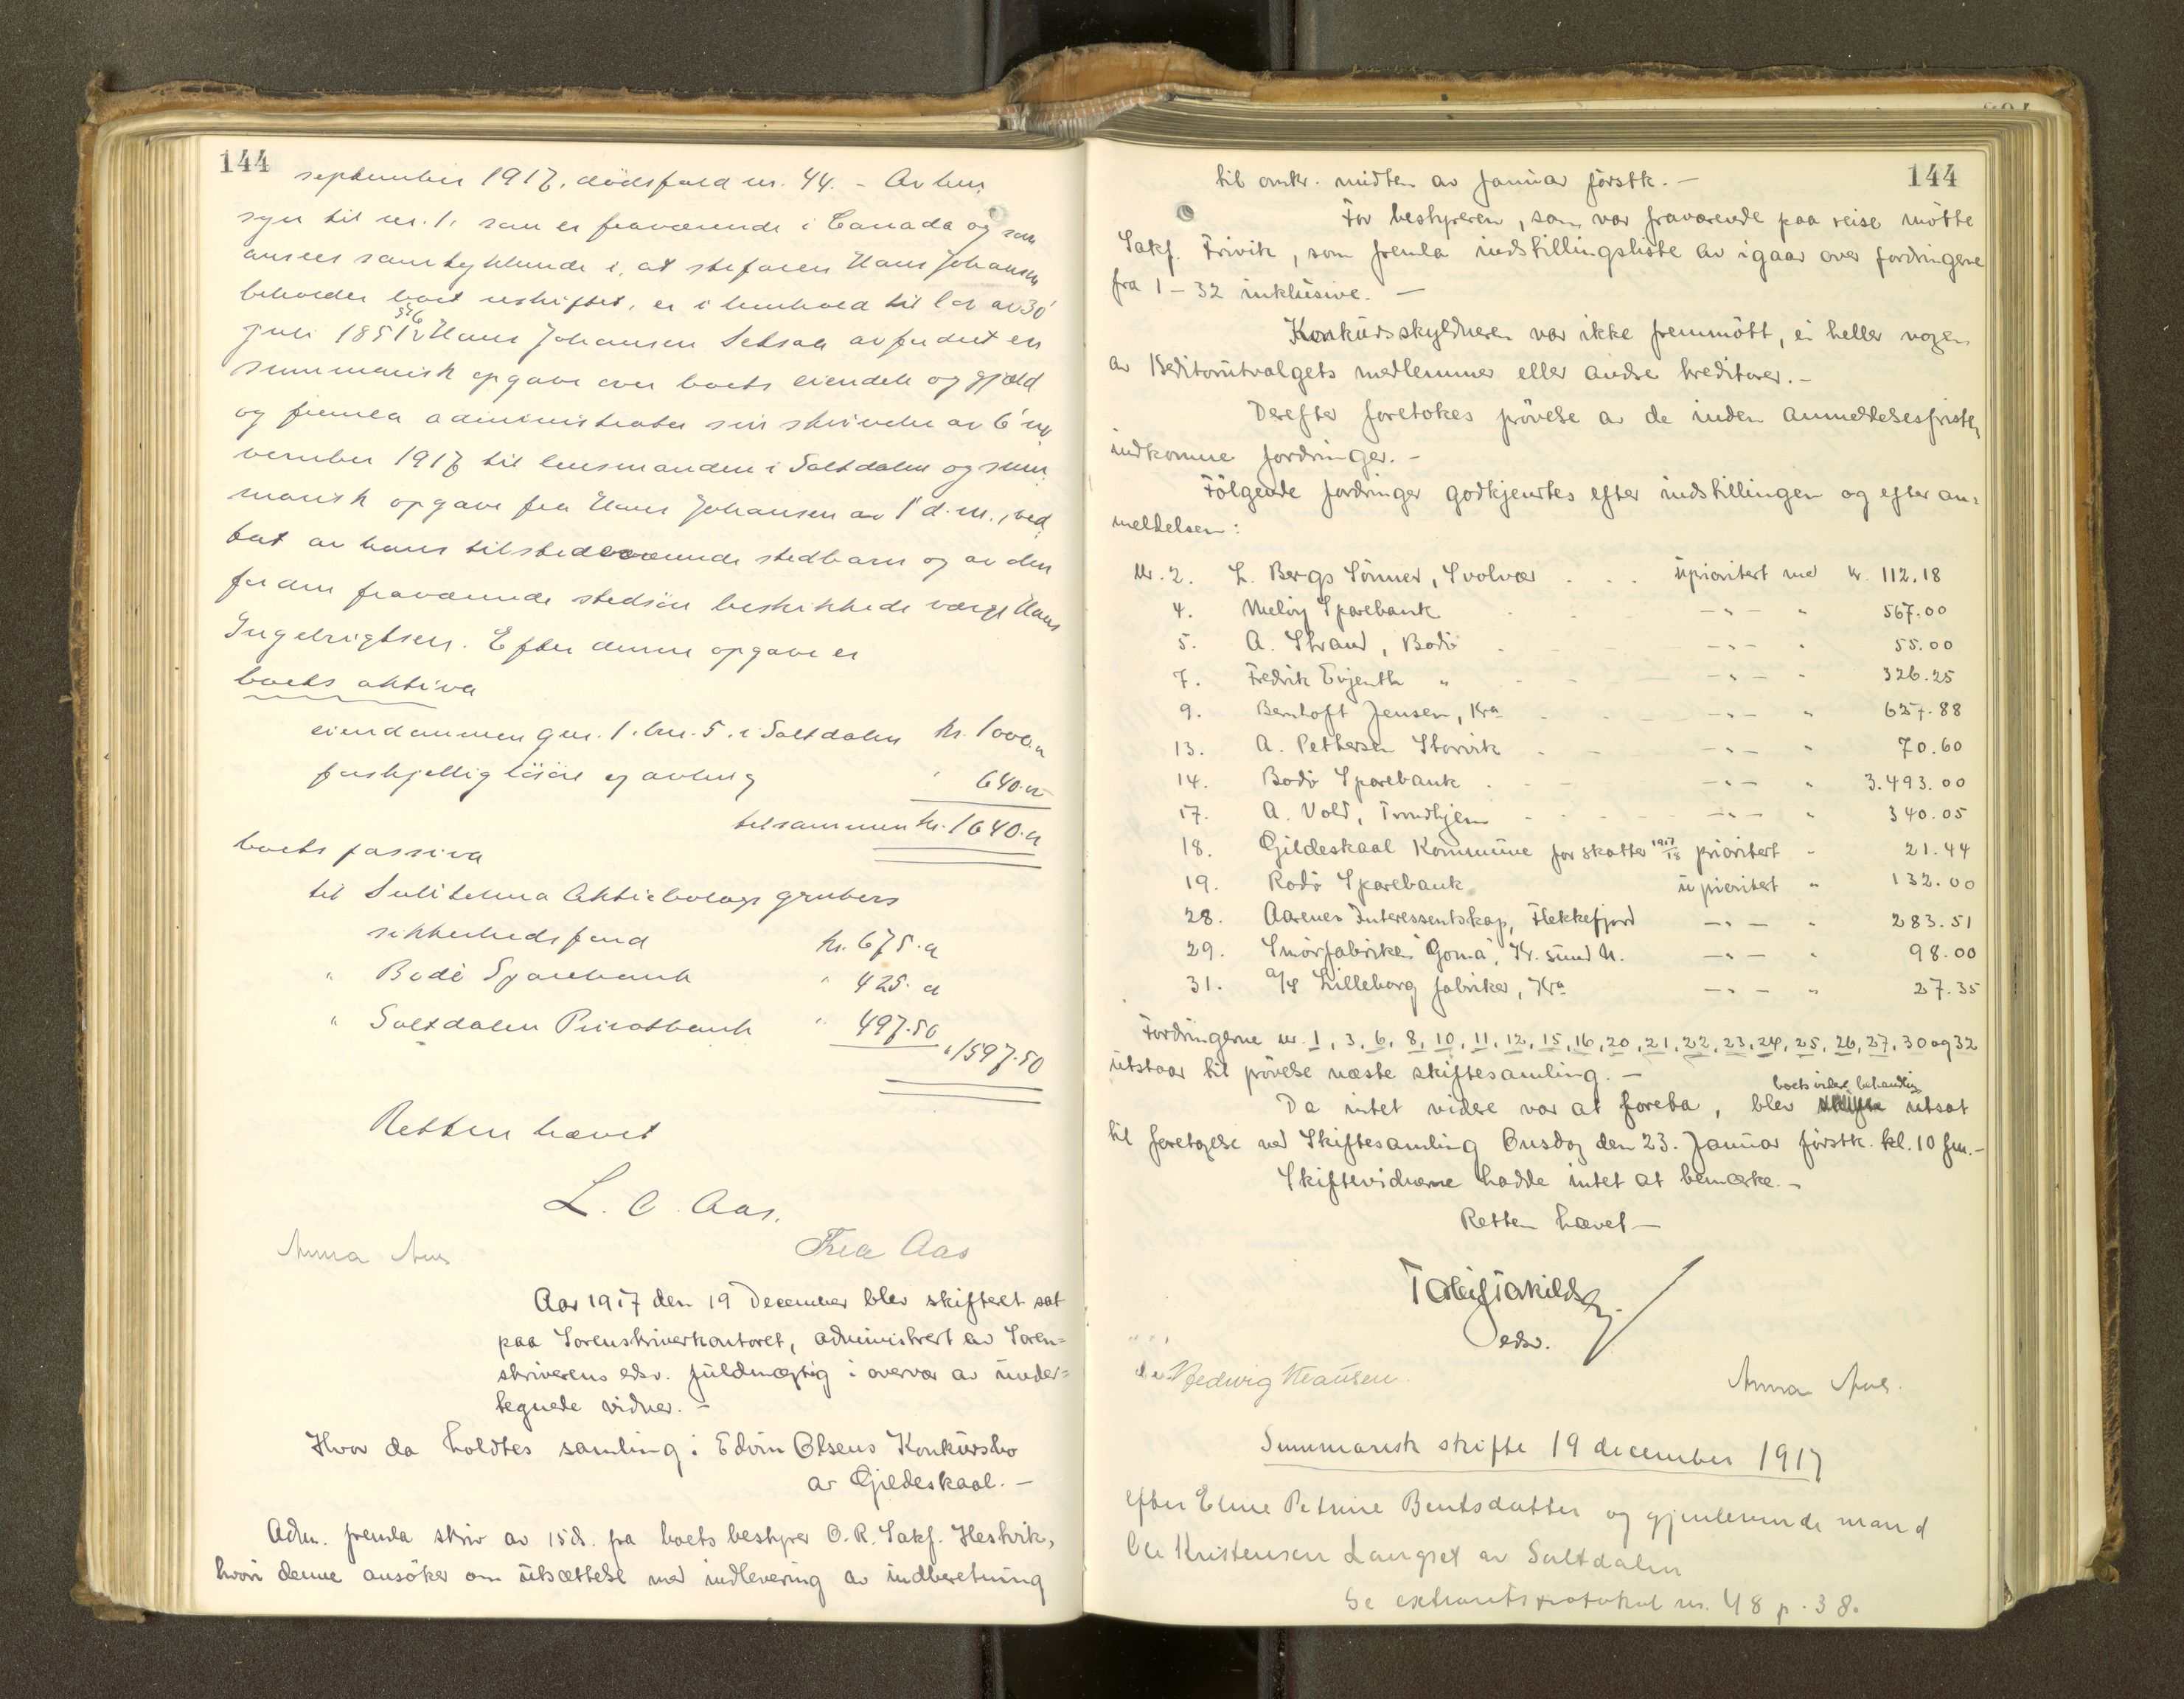 144
september 1917, dödsfald nr. 44. - Av hen
syn til nr. 1, som er fraværende i Canada og som
ansees samtykkende i, at stefaren Hans Johansen
beholder boet uskiftet, er i henhold til lov av 30'
juli 1851 § 12 Hans Johansen Setsaa avfordret en
summarisk opgave over boets eiendele og gjæld
og fremla administrator sin skrivelse av 6' no-
vember 1917 til lensmanden i Saltdalen og sum-
marisk opgave fra Hans Johansen av 1' d.m., ved
tat av hans tilstedeværende stedbarn og av den
for den fraværende stedsön beskikkede værge Hans
Ingebrigtsen. Efter denne opgave er
boets aktiva
eiendommen gnr. 1. bnr. 5. i Saltdalen kr. 1000.„
forskjellig løsöre og avling " 640.„
tilsammen kr. 1640.„
boets passiva
til Sulitelma Aktiebolags grubers
sikkerhedsfond kr. 675.„
" Bodö Sparebank " 425.„
" Saltdalen Privatbank " 497.50
" 1597.50
Retten hævet
L. C. Aas.
Anna Aas Thea Aas
Aar 1917 den 19 December blev skifteret sat
paa Sorenskriverkontoret, administrert av Soren=
skriverens edsv. fuldmægtig i overvær av under=
tegnede vidner. -
Hvor da holdtes samling i Edvin Olsens Konkursbo
av Gjildeskaal. -
Adm. fremla skriv av 15 ds. fra boets bestyrer O.R. Sakf. Hestvik,
hvori denne ansöker om utsættelse med indlevering av indberetning
144
til omkr. midten av Januar förstk. -
For bestyreren, som var fraværende paa reise mötte
Sakf. Frivik, som fremla indstillingsliste av igaar over fordringene
fra 1 - 32 inklusive. -
Konkursskyldneren var ikke fremmött, ei heller nogen
av Kreditorutvalgets medlemmer eller andre kreditorer. -
Derefter foretokes prövelse av de inden anmeldelsesfristen
indkomne fordringer. -
Fölgende fordringer godkjendtes efter indstillingen og efter an=
meldelsen:
Nr. 2. L. Bergs Sönner, Svolvær . . . uprioritert med kr. 112.18
4. Melöy Sparebank -"- " 567.00
5. A. Strand, Bodö -"- " 55.00
7. Fredrik Evjenth " -"- " 326.25
9. Bernhoft Jensen, Kra -"- " 627.88
13. A. Pettersen Storvik -"- " 70.60
14. Bodö Sparebank -"- " 3.493.00
17. A. Vold, Trondhjem -"- " 340.05
18. Gildeskaal Kommune for skatter 1917/18 prioritert " 21.44
19. Rodö Sparebank uprioritert " 132.00
28. Aarenes Interessentskap, Flekkefjord -"- " 283.51
29. Smörfabriken "Goma", Kr. sund N. -"- " 98.00
31. A/S Lilleborg fabriker, Kra -"- " 27.35
Fordringerne nr. 1, 3, 6, 8, 10, 11, 12, 15, 16, 20, 21, 22, 23, 24, 25, 26, 27, 30 og 32
utstaar til prövelse næste skiftesamling. -
boets videre behandling
Da intet videre var at foreta, blev utsat
til foretagelse ved Skiftesamling Onsdag den 23. Januar förstk. kl. 10 fm. -
Skiftevidnerne hadde intet at bemærke. -
Retten hævet -
edsv.
Hedwig Clausen. Anna Aas.
Summarisk skifte 19 december 1917
efter Eline Petrine Bentsdatter og gjenlevende mand
Ole Kristensen Langset av Saltdalen
Se extraretsprotokol nr. 48 p. 38.